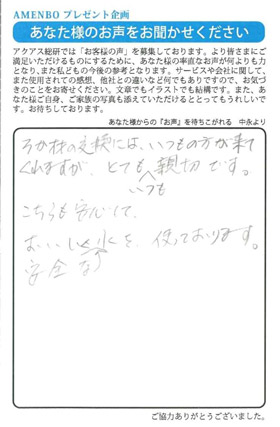 AMENBO プレゼント企画
あなた様のお声をお聞かせください
アクアス総研では「お客様の声」を募集しております。より皆さまにご
満足いただけるものにするために、あなた様の率直なお声が何よりも力
となり、また私どもの今後の参考となります。サービスや会社に関して、
また使用されての感想、他社との違いなど何でもですので、お気づ
きのことをお寄せください。文章でもイラストでも結構です。また、あ
なた様ご自身、ご家族の写真も添えていただけるととってもうれしいで
す。お待ちしております。
あなた様からの『お声』を待ちこがれる 中永より
ろか材の交換には、いつもの方が来て
くれますが、とても親切です。
いつも
こちらも安心して、
おいしく水を、使っております。
安全な
ご協力ありがとうございました。